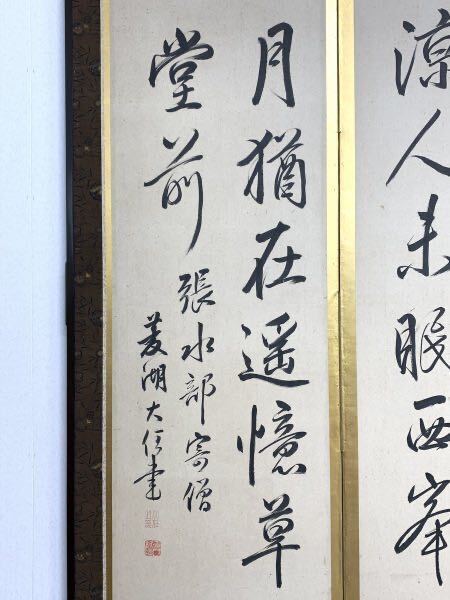 涼人未眠西峯
月猶在遥憶草
堂前
張水部寄僧
菱湖大任書